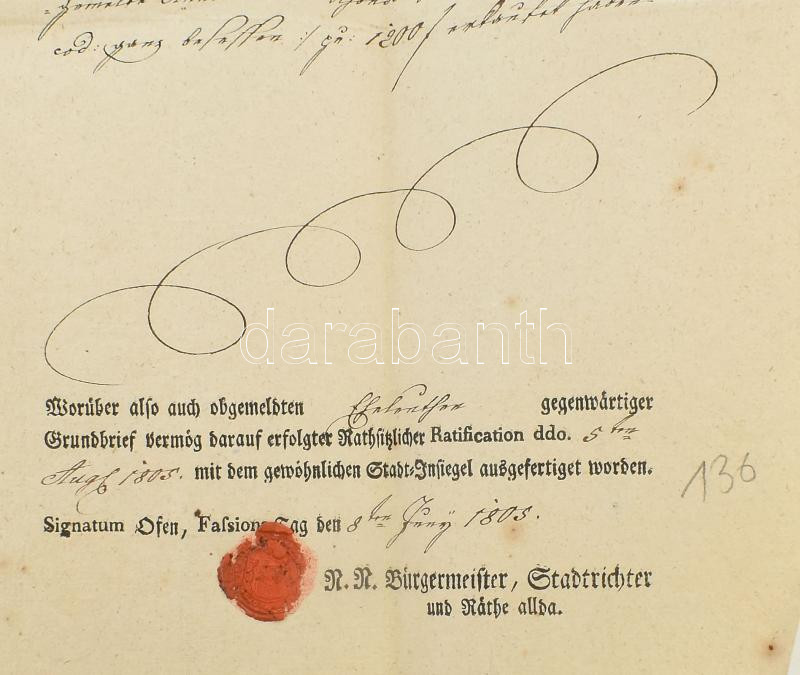 cod: ganz besessen :/ pr: 1200 f erkaufet haben
darabanth
Worüber also auch obgemeldten Eheleuthen gegenwärtiger
Grundbrief vermög darauf erfolgter Rathsitzlicher Ratification ddo. 5ten
Augt 1805. mit dem gewöhnlichen Stadt-Insiegel ausgefertiget worden.
136
Signatum Ofen, Faſsions Tag den 8ten Juny 1805.
N. N. Bürgermeister, Stadtrichter
und Räthe allda.